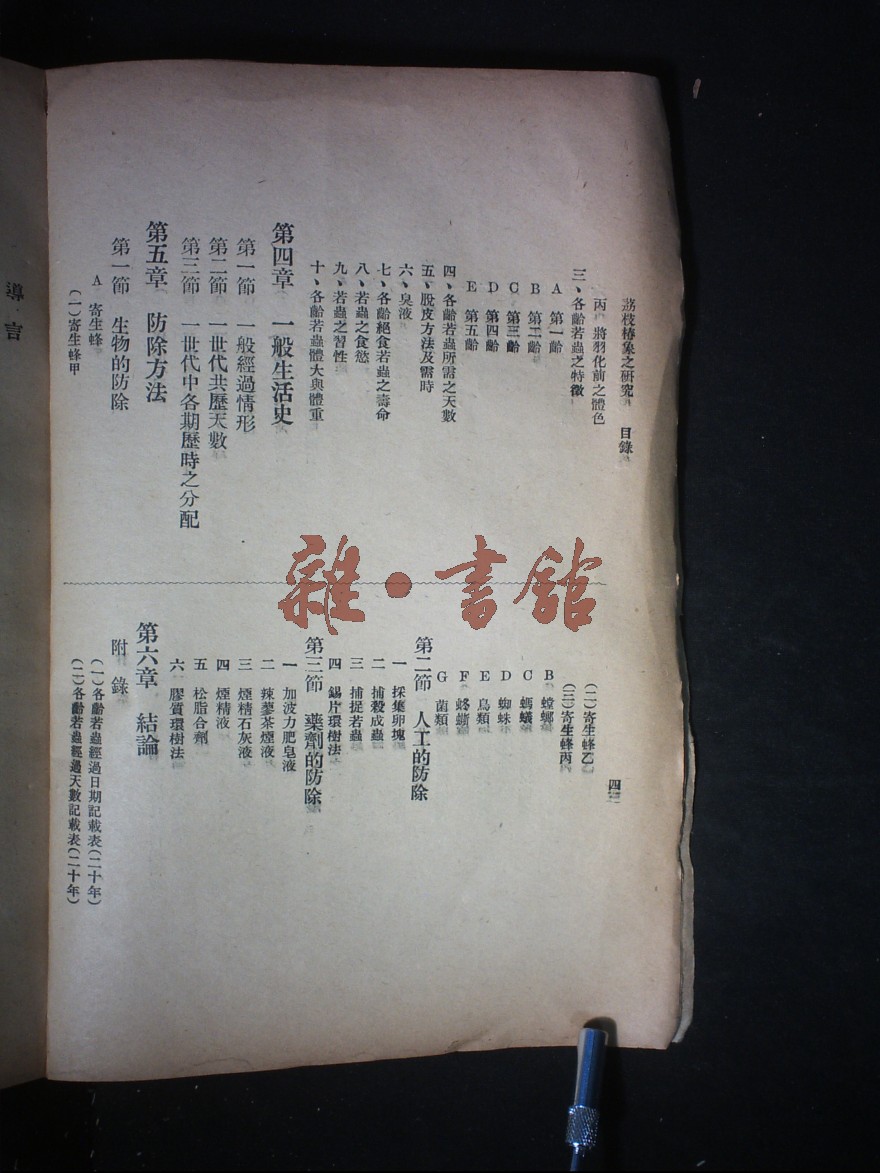 荔枝椿象之研究　目錄
丙、將羽化前之體色
三、各齡若蟲之特徵
A　第一齡
B　第二齡
C　第三齡
D　第四齡
E　第五齡
四、各齡若蟲所需之天數
五、脫皮方法及需時
六、臭液
七、各齡絕食若蟲之壽命
八、若蟲之食慾
九、若蟲之習性
十、各齡若蟲體大與體重
第四章　一般生活史
第一節　一般經過情形
第二節　一世代共歷天數
第三節　一世代中各期歷時之分配
第五章　防除方法
第一節　生物的防除
A　寄生蜂
(一)寄生蜂甲
(二)寄生蜂乙
(三)寄生蜂丙
B　螳螂
C　螞蟻
D　蜘蛛
E　鳥類
F
G　菌類
第二節　人工的防除
一　採集卵塊
二　捕殺成蟲
三　捕捉若蟲
四　錫片環樹法
第三節　藥劑的防除
一　加波力肥皂液
二　辣蓼茶煙液
三　煙精石灰液
四　煙精液
五　松脂合劑
六　膠質環樹法
第六章　結論
附　錄
(一)各齡若蟲經過日期記載表(二十年)
(二)各齡若蟲經過天數記載表(二十年)
導言
雜·書館